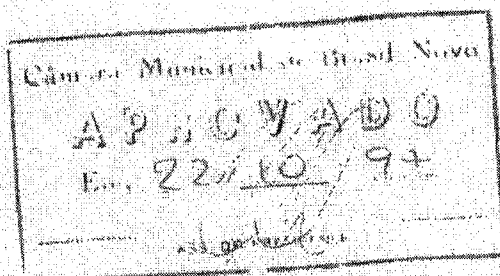 Câmara Municipal de Brasil Novo
APROVADO
Em, 22/10/97